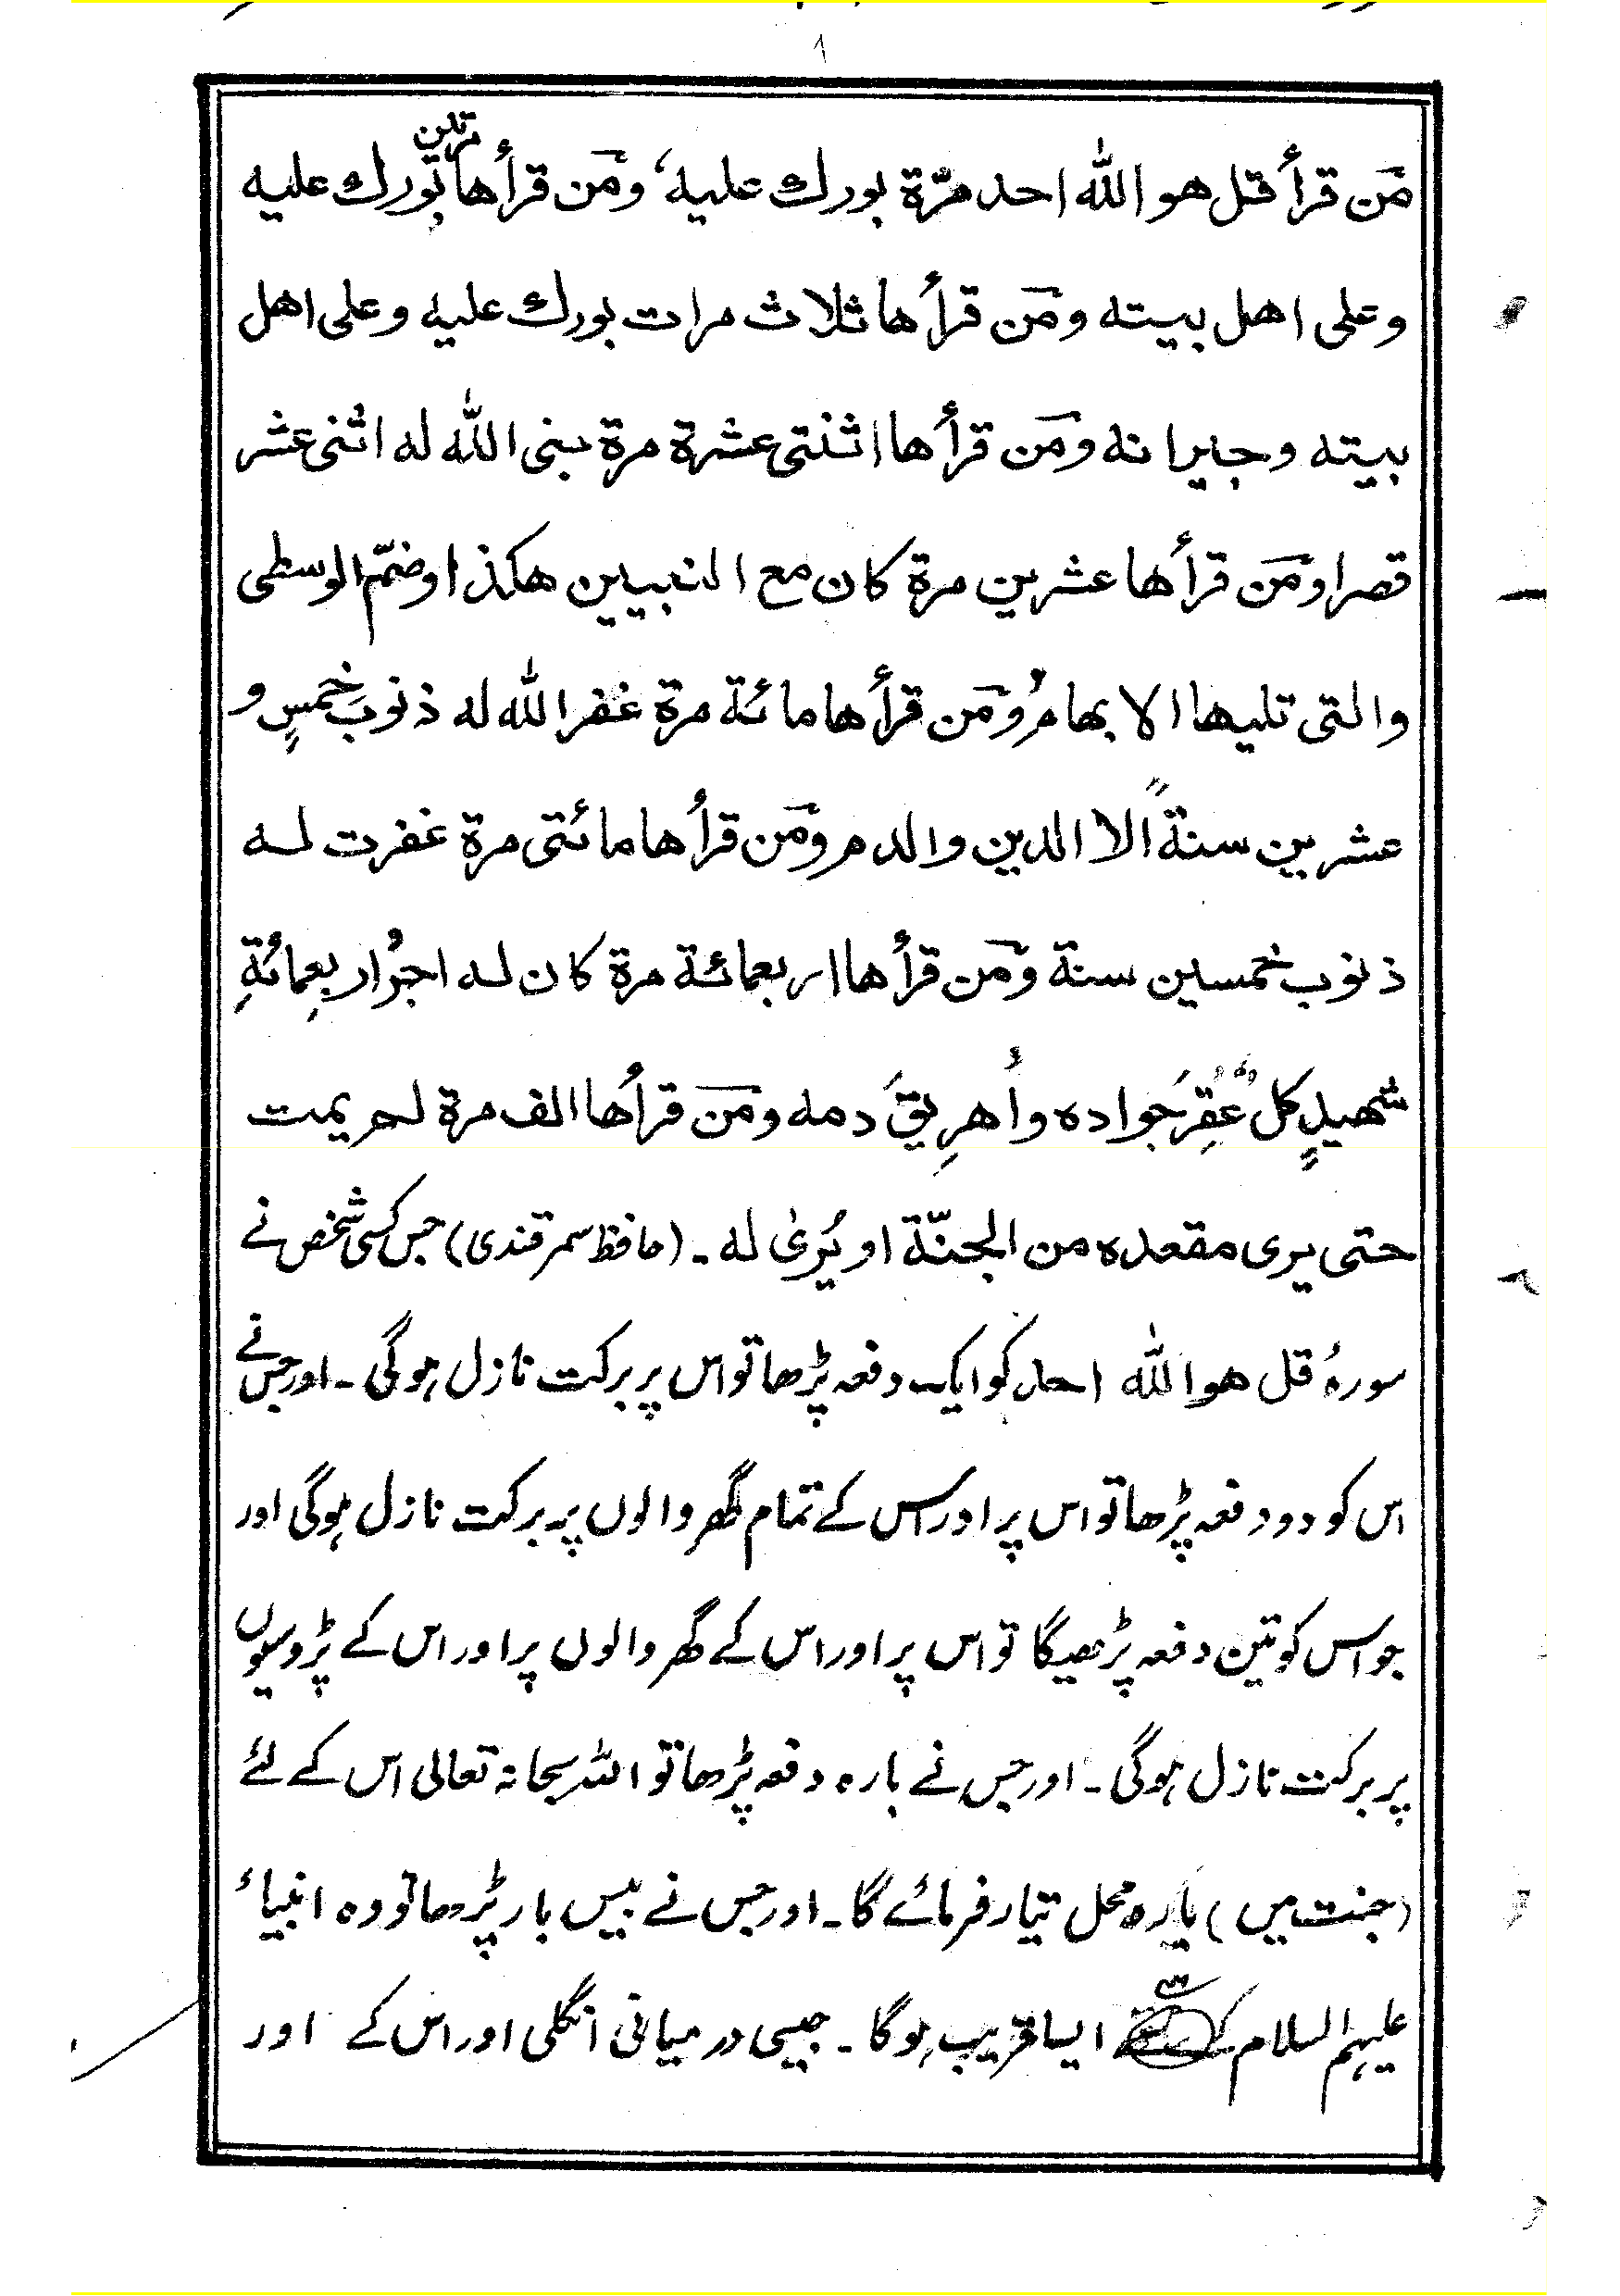 ۸
مَن قرأ قل هو الله احد مرّة بورك عليه، ومَن قرأها مرتين بورك عليه
وعلى اهل بيته ومَن قرأها ثلاث مرات بورك عليه وعلى اهل
بيته وجيرانه ومَن قرأها اثنتى عشرة مرة بنى الله له اثنى عشر
قصرا ومَن قرأها عشرين مرة كان مع النبيين هكذا وضمّ الوسطى
والتى تليها الابهام ومَن قرأها مائة مرة غفر الله له ذنوبَ خمسٍ و
عشرين سنةً الا الدين والدم ومَن قرأها مائتى مرة غفرت له
ذنوب خمسين سنة ومَن قرأها اربعمائة مرة كان له اجرُ اربعِمائةِ
شهيدٍ كلٌ عُقِرَ جواده وأُهرِيقَ دمه ومَن قرأها الف مرة لم يمت
حتى يرى مقعده من الجنّة او يُرىٰ له ۔ (حافظ سمرقندی) جس کسی شخص نے
سورۂ قل هو الله احد کو ایک دفعہ پڑھا تو اس پر برکت نازل ہوگی ۔ اور جس نے
اس کو دو دفعہ پڑھا تو اس پر اور اس کے تمام گھر والوں پر برکت نازل ہوگی اور
جو اس کو تین دفعہ پڑھیگا تو اس پر اور اس کے گھر والوں پر اور اس کے پڑوسیوں
پر برکت نازل ہوگی ۔ اور جس نے بارہ دفعہ پڑھا تو اللہ سبحانہ تعالی اس کے لئے
(جنت میں) بارہ محل تیار فرمائے گا ۔ اور جس نے بیس بار پڑھا تو وہ انبیاء
علیہم السلام کے ایسا قریب ہوگا ۔ جیسی درمیانی انگلی اور اس کے اور